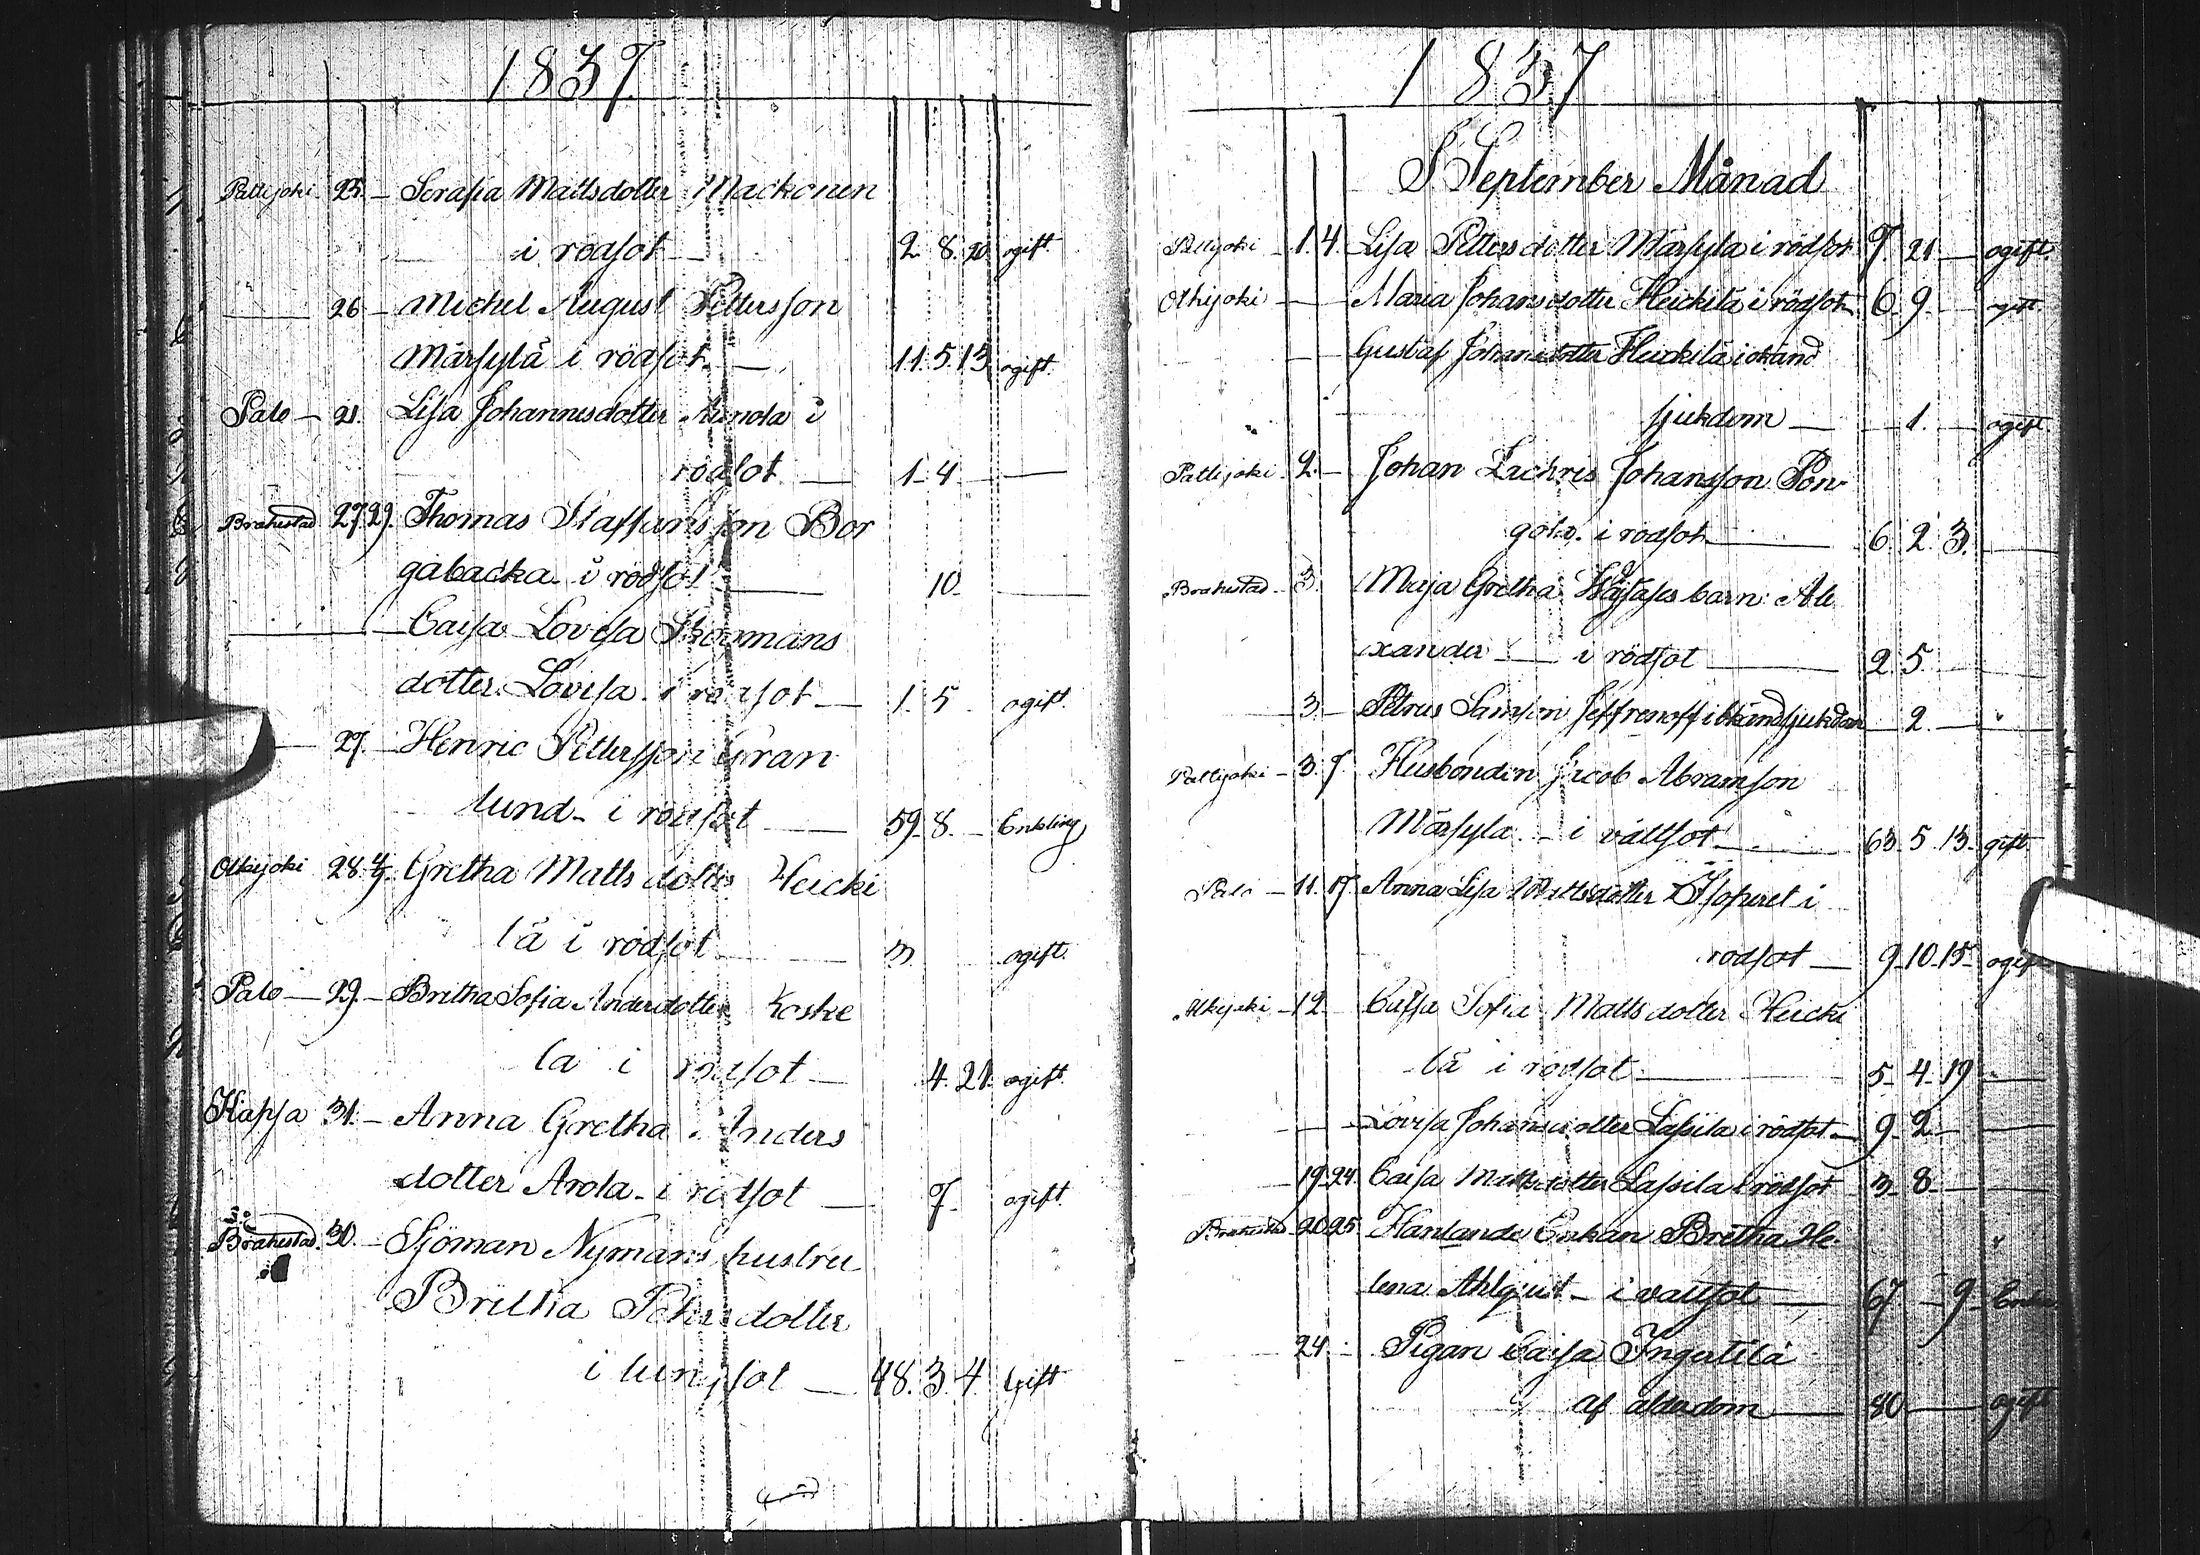 1837
Pattijoki 25. Serafia Mattsdotter Mackonen
i rödsot 2. 8. 20 ogift
26 Michel August Pettersson
Märsylä i rödsot 11. 5. 13 ogift
Palo 21. Lisa Johannesdotter i
rödsot 1. 4
Brahestad 27 29. Thomas Staffansson Bor
gabacka i rödsot 10
Caisa Lovisa
dotter Lovisa i rödsot 1. 5 ogift
27. Henric Pettersson Gran
lund i rödsot 59. 8 Enkling
Olkijoki 28 Gretha Matts dotter Heicki
lä i rödsot 3 ogift
Palo 29. Britha Sofia Andersdotter Koske
la i rödsot 4. 21 ogift
Hapsa 31. Anna Gretha Anders
dotter Arola i rödsot 7 ogift
Brahestad 30. Sjöman Nymans hustru
Britha Pehrsdotter
i lungsot 48. 3. 4. Gift
1837
September Månad
Pattijoki 1. 4. Lisa Petters dotter Märsyla i rödsot 7. 21 ogift
Olkijoki Maria Johansdotter Heickilä i rödsot 6. 9 ogift
Gustaf Johansdotter Heickilä i okänd
sjukdom 1. ogift
Pattijoki 2. Johan Zachris Johansson Pon
gola i rödsot 6. 2. 3.
Brahestad 3. Maja Gretha barn Ale
xander i rödsot 2 5.
3 Petrus Samson i okänd sjukdom 2
Pattijoki 3. 7 Husbonden Jacob Abramson
Märsyla i vattsot 63. 5. 13 gift
Palo 11. 17. Anna Lisa Mattsdotter i
rödsot 9. 10. 15 ogift
Olkijoki 12. Caisa Sofia Matts dotter Heicki
lä i rödsot 5. 4. 19
Lovisa Johansdotter Lassila i rödsot 9. 2
19 24. Caisa Mattsdotter Lassila i rödsot 3. 8
Brahestad 20 25 Enkan Britha He
lena Ahlquist i vattsot 67 9 Enka
24 Pigan Caisa
af ålderdom 80 ogift